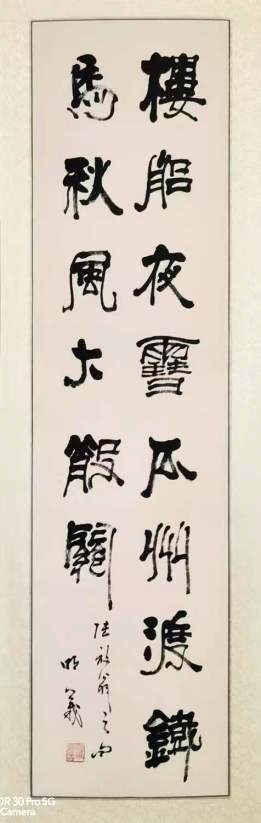 樓船夜雪瓜州渡鐵
馬秋風大散關
陸放翁之句
明義
OR 30 Pro 5G
Camera